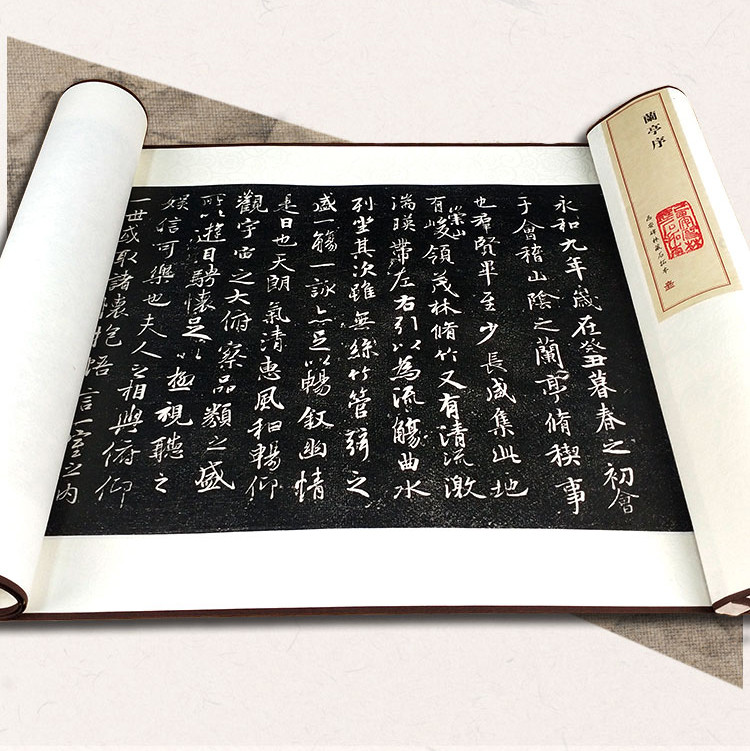 蘭亭序
永和九年歲在癸丑暮春之初會
于會稽山陰之蘭亭脩稧事
也羣賢畢至少長咸集此地
有崇山峻領茂林脩竹又有清流激
湍暎帶左右引以為流觴曲水
列坐其次雖無絲竹管弦之
盛一觴一詠亦足以暢敘幽情
是日也天朗氣清惠風和暢仰
觀宇宙之大俯察品類之盛
所以遊目騁懷足以極視聽之
娛信可樂也夫人之相與俯仰
一世或取諸懷抱悟言一室之內